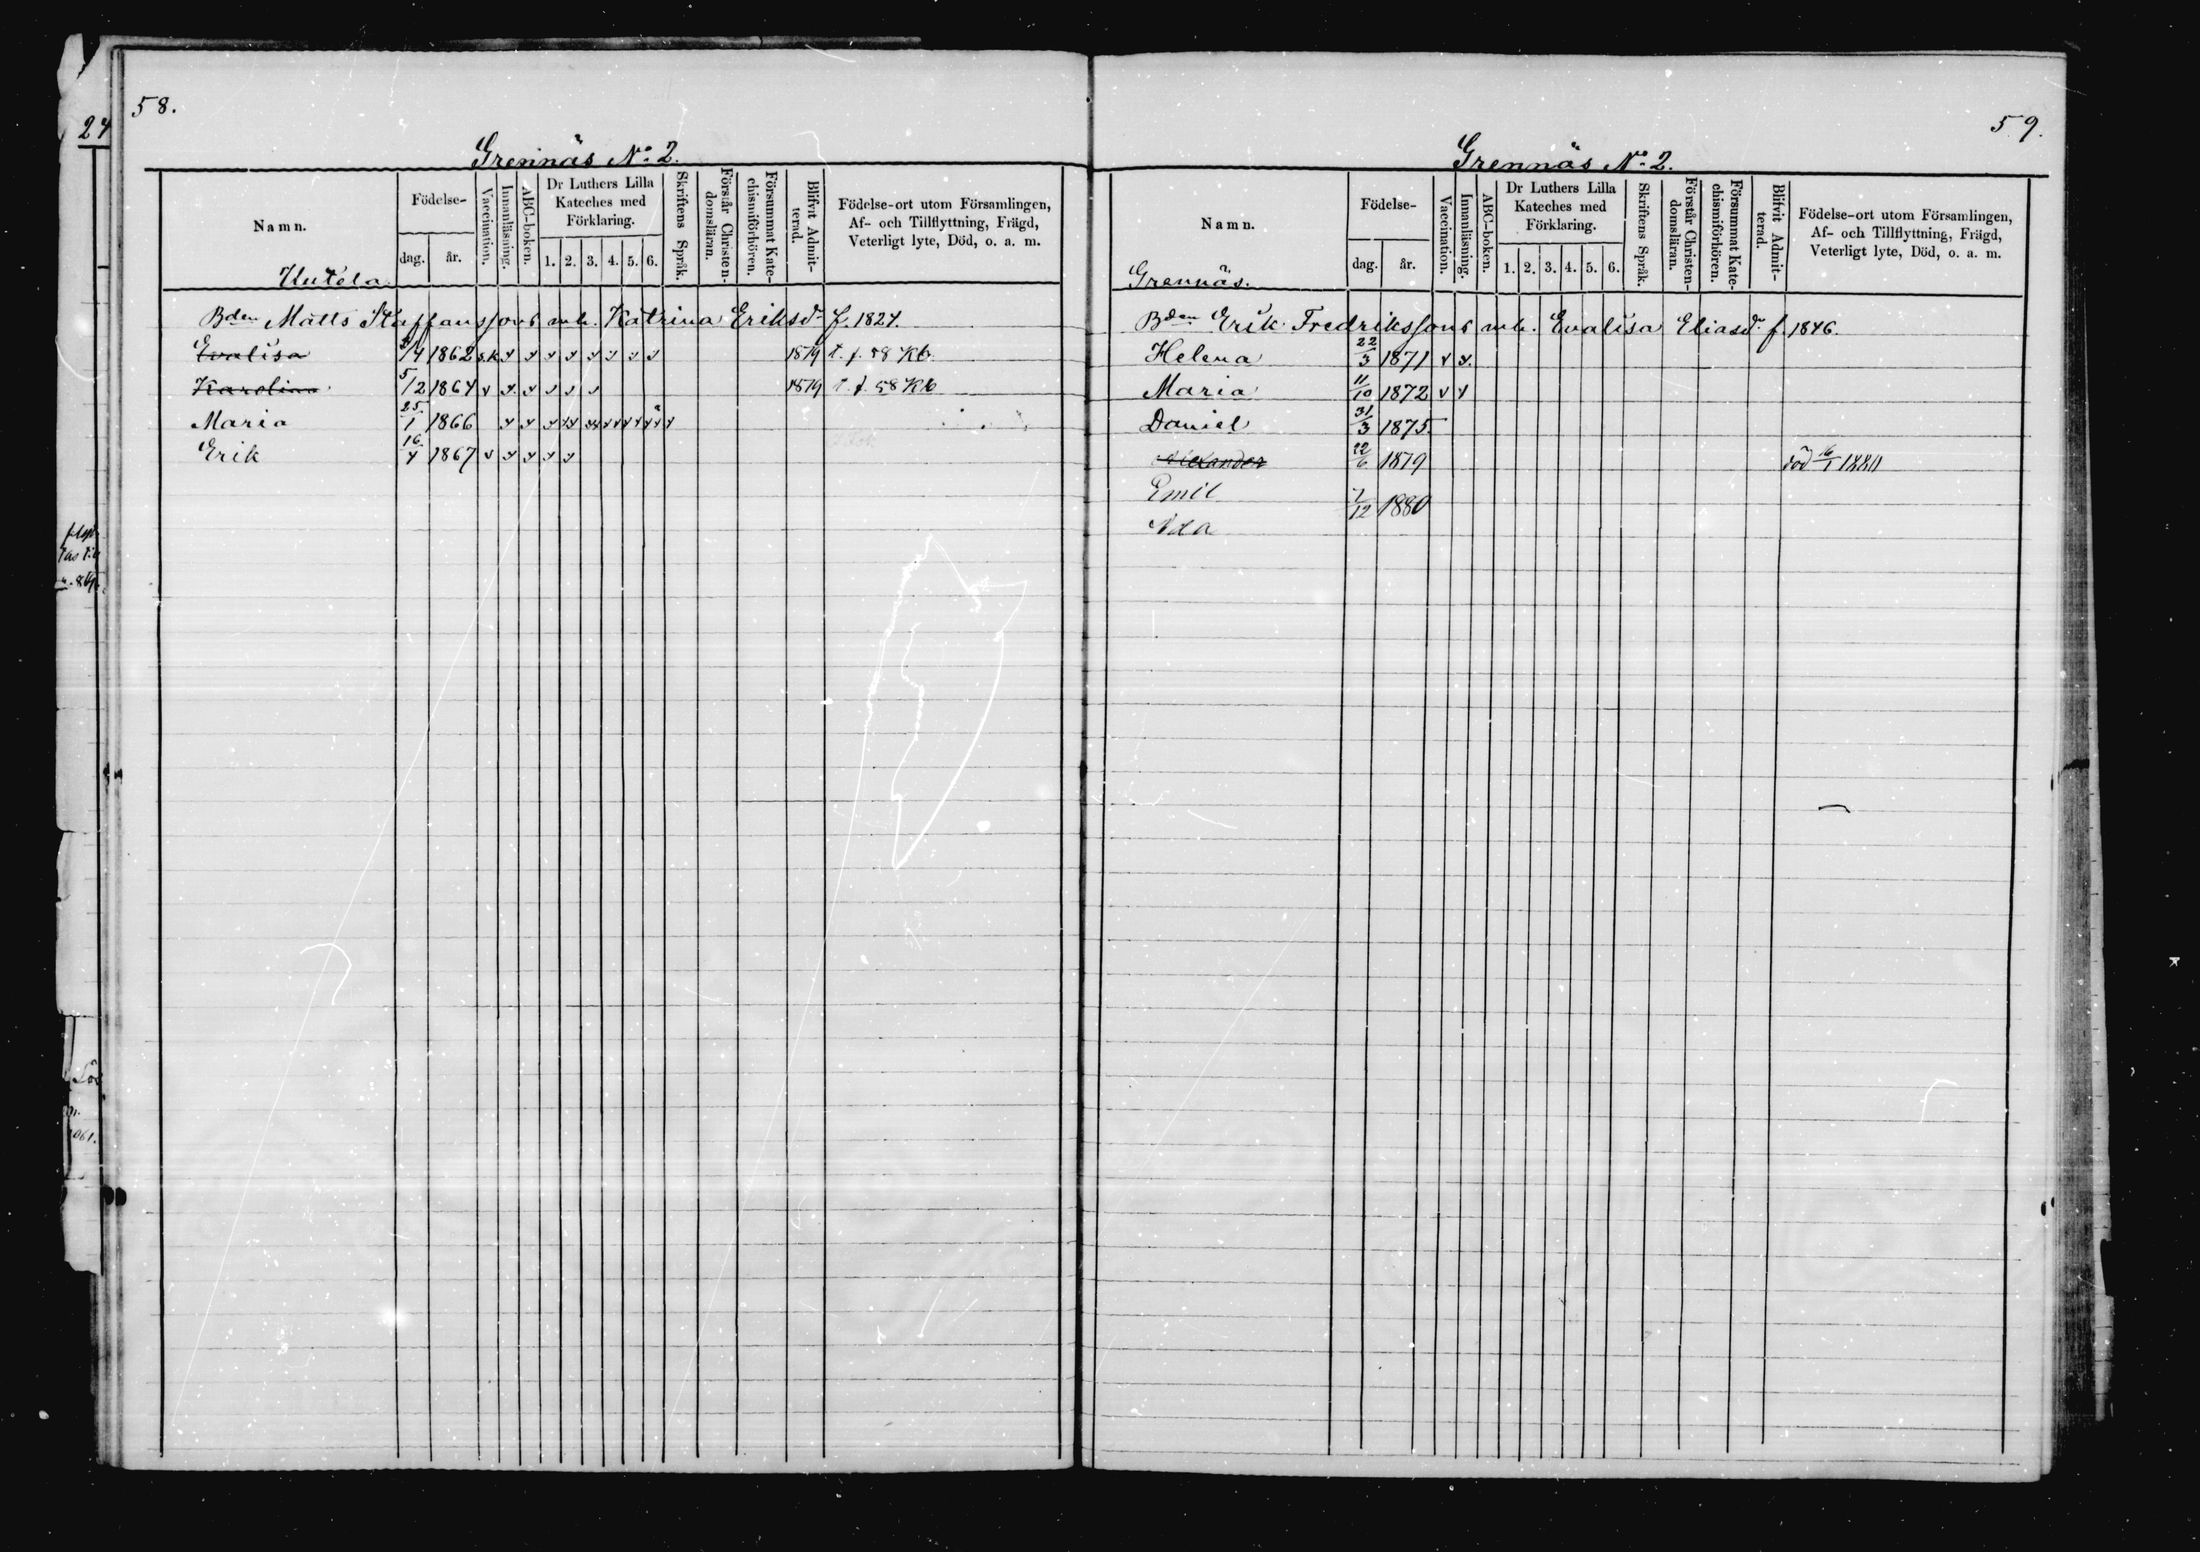 58.
Grennäs No 2.
Namn. Födelse- dag. år. Vaccination. Innanläsning. ABC-boken. Dr Luthers Lilla Kateches med Förklaring. 1. 2. 3. 4. 5. 6. Skriftens Språk. Förstår Christendomsläran. Försummat Katechismiförhören. Blifvit Admitterad. Födelse-ort utom Församlingen, Af- och Tillflyttning, Frägd, Veterligt lyte, Död, o. a. m.
Bden Matts Staffanssons mh. Katrina Eriksdr f. 1824.
Evalisa /4 1862 s.k 1879 t. f. 58 Kb
Karolina 5/2 1864 1879 t. f. 58 Kb
Maria 25/1 1866
Erik 16/4 1867
59.
Grennäs No 2.
Namn. Födelse- dag. år. Vaccination. Innanläsning. ABC-boken. Dr Luthers Lilla Kateches med Förklaring. 1. 2. 3. 4. 5. 6. Skriftens Språk. Förstår Christendomsläran. Försummat Katechismiförhören. Blifvit Admitterad. Födelse-ort utom Församlingen, Af- och Tillflyttning, Frägd, Veterligt lyte, Död, o. a. m.
Grennäs.
Bden Erik Fredrikssons mh. Evalisa Eliasdr f. 1846.
Helena 22/3 1871
Maria 11/10 1872
Daniel 31/3 1875.
Alexander 22/6 1879 död 16/1 1880
Emil
7/12 1880
Ida
24